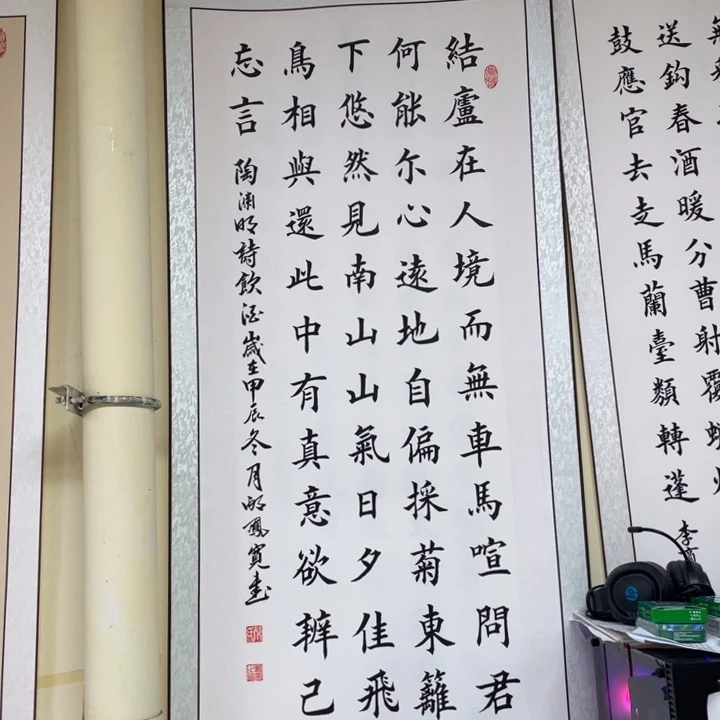 送鈎春酒暖分曹射覆蠟
鼓應官去走馬蘭臺類轉蓬
李商
結廬在人境而無車馬喧問君
何能尔心遠地自偏採菊東籬
下悠然見南山山氣日夕佳飛
鳥相與還此中有真意欲辨己
忘言 陶淵明詩飲酒歲在甲辰冬月